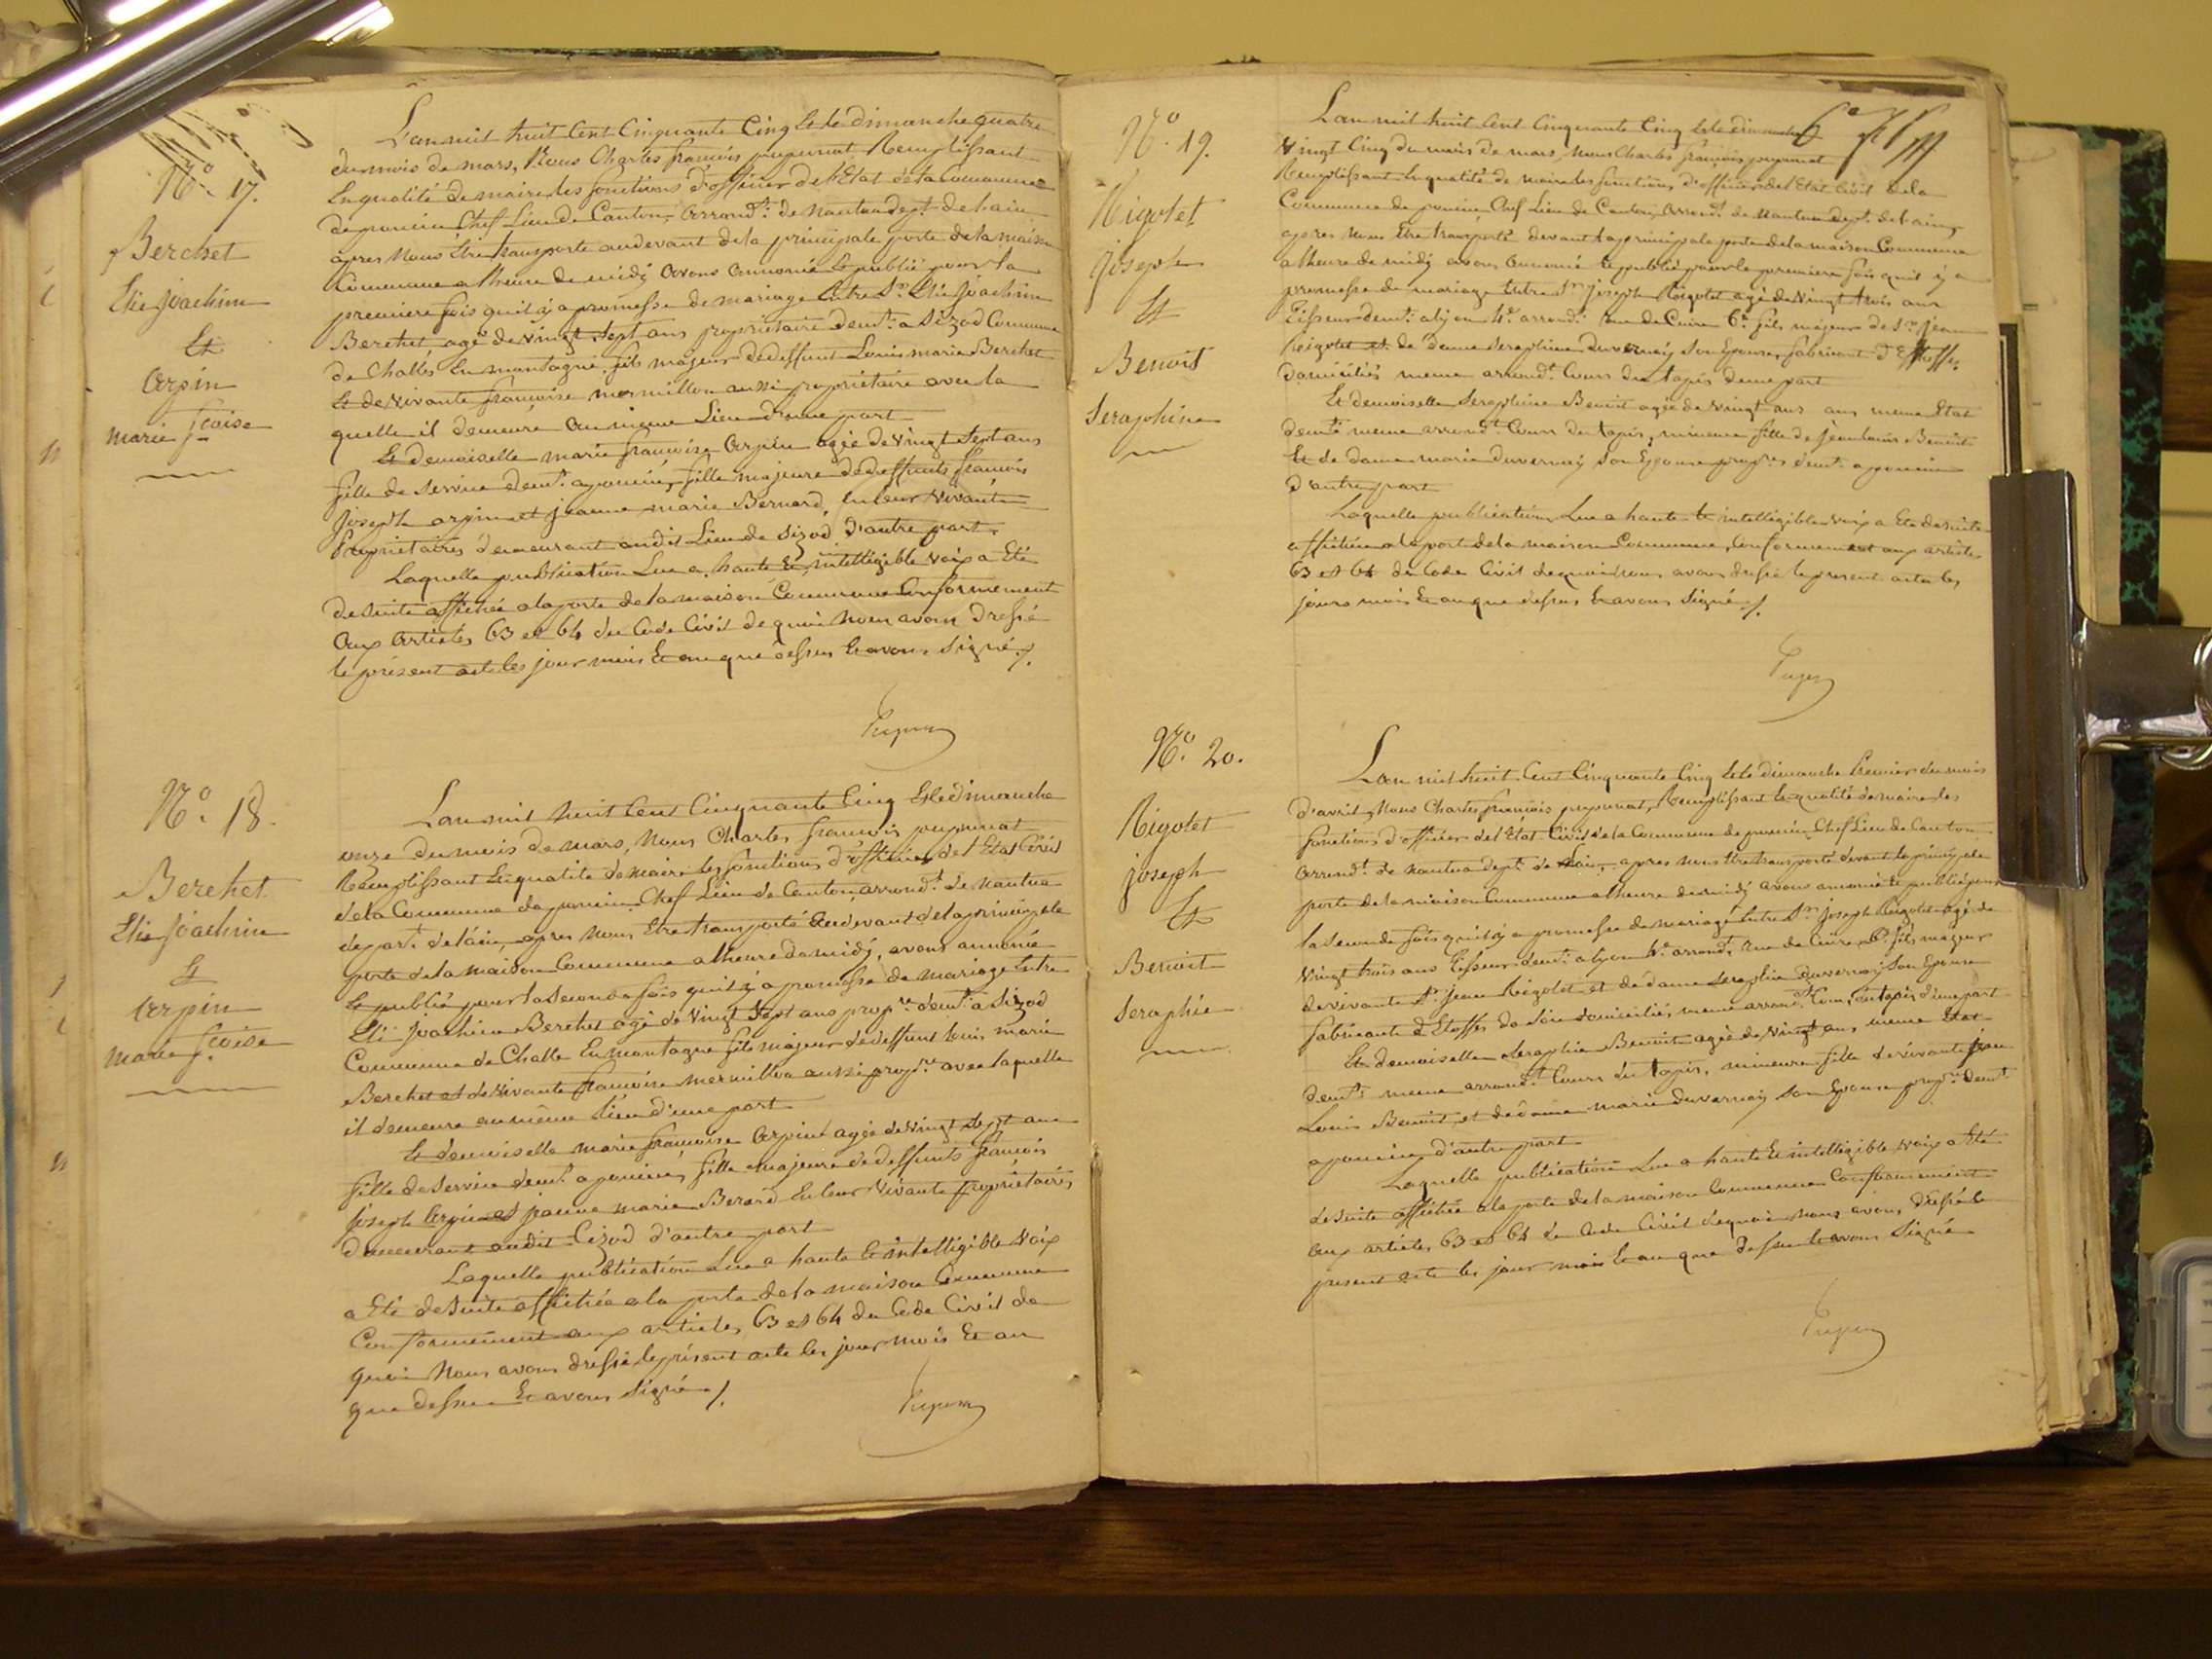 N.º 17.
Berchet
Elie Joachim
Et
Arpin
marie f.coise
L'an mil huit Cent Cinquante Cinq Et le dimanche quatre
du mois de mars, Nous Charles françois Remplissant
En qualité de maire les fonctions d'officier de l'Etat de la Commune
de poncin Chef Lieu de Canton, arrond.t de nantua dep.t de l'ain
apres Nous Etre transporté audevant de la principale porte de la maison
Commune a l'heure de midi avons annoncé Et publié pour la
premiere fois qu'il y a promesse de mariage Entre S.r Elie Joachim
Berchet agé de vingt Sept ans propriétaire dem.t a Sizod Commune
de Challes En montagne, fils majeur de deffunt Louis marie Berchet
Et de vivante françoise mermillon aussi propriétaire avec la
quelle il demeure au meme Lieu d'une part
Et demoiselle marie françoise Arpin agée de vingt Sept ans
fille de Service dem.t a poncin, fille majeure de deffunts françois
Joseph arpin et jeanne marie Bernard, En leur vivant
Propriétaires demeurant audit Lieu de Sizod d'autre part.
Laquelle publication Lue a haute Et intelligible voix a Eté
de suite affichée a la porte de la maison Commune Conformement
Aux articles 63 et 64 du Code Civil de quoi Nous avons dressé
le présent acte les jour mois Et an que dessus Et avons Signé./.
N.º 18.
Berchet
Elie Joachim
Et
Arpin
marie f.coise
L'an mil huit Cent Cinquante Cinq Et le dimanche
onze du mois de mars, Nous Charles françois
Remplissant En qualité de maire les fonctions d'officier de l'Etat Civil
de la Commune de poncin Chef Lieu de Canton, arrond.t de nantua
depar.t de l'ain, apres Nous Etre transporté audevant de la principale
porte de la maison Commune a l'heure de midi, avons annoncé
Et publié pour la Seconde fois qu'il y a promesse de mariage Entre
Eli Joachim Berchet agé de vingt Sept ans prop.re dem.t a Sizod
Commune de Challe En montagne fils majeur de deffunt Louis marie
Berchet et de vivante françoise mermillon aussi prop.re avec laquelle
il demeure au meme Lieu d'une part
Et demoiselle marie françoise Arpin agée de vingt Sept ans
fille de Service dem.t a poncin, fille majeure de deffunts françois
Joseph Arpin et jeanne marie Berard En leur vivant propriétaires
demeurant audit Cizod d'autre part
Laquelle publication Lue a haute Et intelligible voix
a Eté de suite affichée a la porte de la maison Commune
Conformement aux articles 63 et 64 du Code Civil de
quoi Nous avons dressé le présent acte les jour mois Et an
que dessus Et avons Signé./.
N.º 19.
Rigotet
joseph
Et
Benoit
Seraphine
L'an mil huit Cent Cinquante Cinq Et le dimanche
vingt Cinq du mois de mars Nous Charles françois
Remplissant En qualité de maire les fonctions d'officier de l'Etat Civil de la
Commune de poncin, Chef Lieu de Canton, arrond.t de Nantua dep.t de l'ain,
apres Nous Etre transporté devant la principale porte de la maison Commune
a l'heure de midi avons annoncé Et publié pour la premiere fois qu'il y a
promesse de mariage Entre S.r joseph Rigotet agé de vingt trois ans
Tisseur dem.t a lyon 4.e arrond.t rue de Cuire 6.e fils majeur de S.r jean
Rigotet et de dame Seraphine Duvernay Son Epouse, fabricant d'Etoffes,
domiciliés meme arrond.t Cours du tapis d'une part
Et demoiselle Seraphine Benoit agée de vingt ans meme Etat
dem.t meme arrond.t Cours du tapis, mineure fille de Jean Louis Benoit
Et de dame marie Duvernay Son Epouse prop.res dem.t a poncin
d'autre part
Laquelle publication Lue a haute Et intelligible voix a Eté de suite
affichée a la port de la maison Commune, Conformement aux articles
63 et 64 du Code Civil de quoi nous avons dressé le present acte les
jours mois Et an que dessus Et avons Signé./.
N.º 20.
Rigotet
joseph
Et
Benoit
Seraphie
L'an mil huit Cent Cinquante Cinq Et le dimanche Premier du mois
d'avril, Nous Charles françois Remplissant En qualité de maire les
fonctions d'officier de l'Etat Civil de la Commune de poncin, Chef Lieu de Canton
arrond.t de nantua dep.t de l'ain, apres nous Etre transporté devant la principale
porte de la maison Commune a l'heure de midi avons annoncé Et publié pour
la Seconde fois qu'il y a promesse de mariage Entre S.r joseph Rigotet agé de
vingt trois ans Tisseur dem.t a lyon 4.e arrond.t rue de Cuire 6.e fils majeur
de vivante S.r jean Rigotet et de dame Seraphie Duvernay Son Epouse
fabricants d'Etoffes de Soie domiciliés meme arrond.t Cours du tapis d'une part
Et demoiselle Seraphie Benoit agée de vingt ans meme Etat
dem.t meme arrond.t Cours du tapis, mineure fille de vivants jean
Louis Benoit et de dame marie Duvernay Son Epouse prop.res dem.t
a poncin d'autre part
Laquelle publication Lue a haute Et intelligible voix a Eté
de suite affichée a la porte de la maison Commune Conformement
aux articles 63 et 64 du Code Civil de quoi nous avons dressé le
present acte les jour mois Et an que dessus Et avons Signé